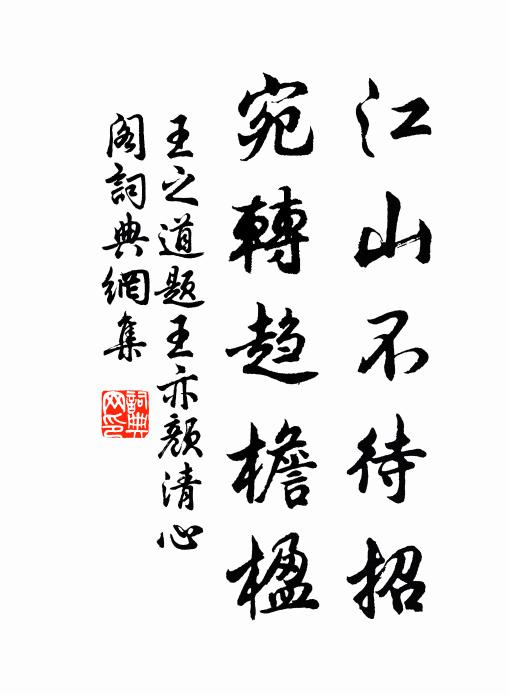 江山不待招
宛轉趋檐楹
王之道题王亦颜清心
阁詞典網集
詞典网印